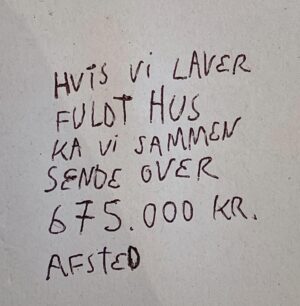 HVIS Vi LAVER
FULDT HUS
KA Vi SAMMEN
SENDE OVER
675.000 KR.
AFStED